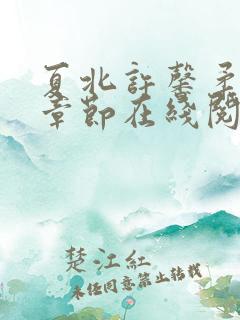 夏北許馨柔
章節在綫閱
楚江紅
未经同意禁止转载